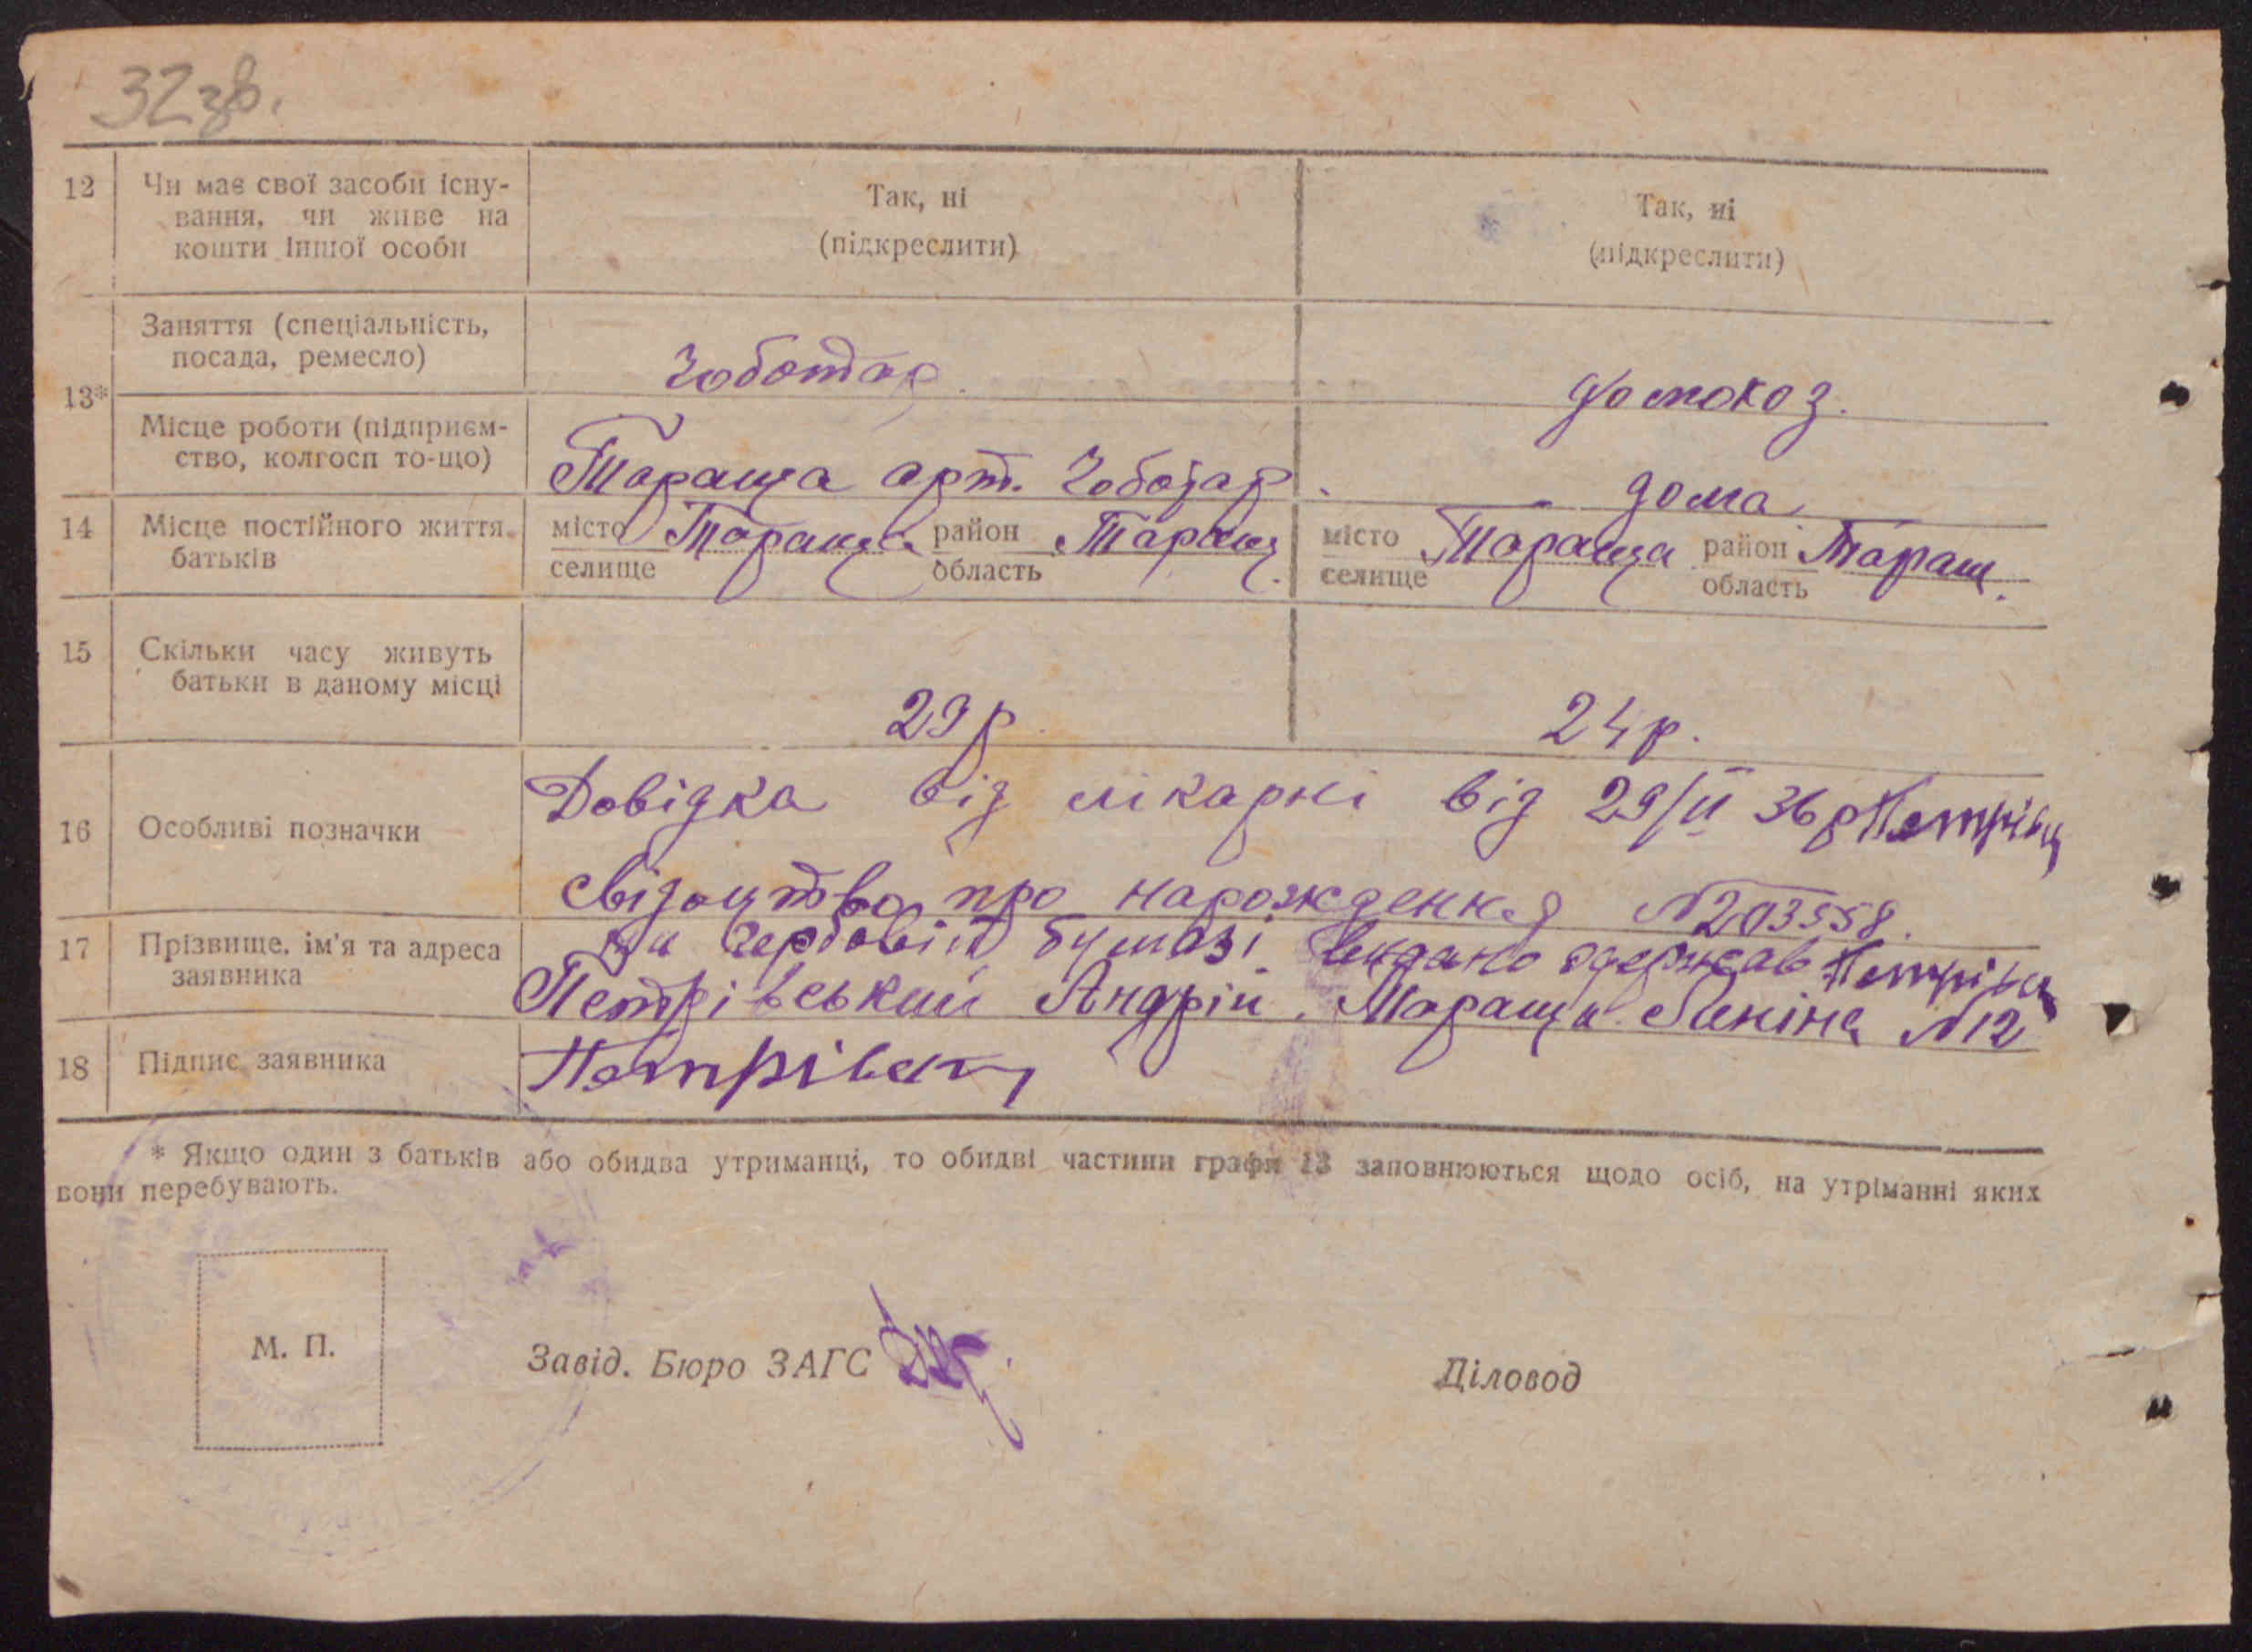 32зв.
12 Чи має свої засоби існу-
вання, чи живе на
кошти іншої особи
Так, ні
(підкреслити)
Так, ні
(підкреслити)
13*
Заняття (спеціальність,
посада, ремесло)
Чоботар
домохоз.
Місце роботи (підприєм-
ство, колгосп то-що)
Тараща арт. Чоботар
дома
14 Місце постійного життя
батьків
місто Тараща район Таращ
селище область
місто Тараща район Таращ.
селище область
15 Скільки часу живуть
батьки в даному місці
29р
24р.
16 Особливі позначки
Довідка від лікарні від 29/II 36р Петрівск
свідоцтво про народження N203558.
17 Прізвище, ім'я та адреса
заявника
на гербовій бумазі видано одержав Петрівск
Петрівський Андрій. Тараща Леніна N12
18 Підпис заявника
Петрівск
* Якщо один з батьків або обидва утриманці, то обидві частини графи 13 заповнюються щодо осіб, на утріманні яких
вони перебувають.
М. П.
Завід. Бюро ЗАГС
Діловод